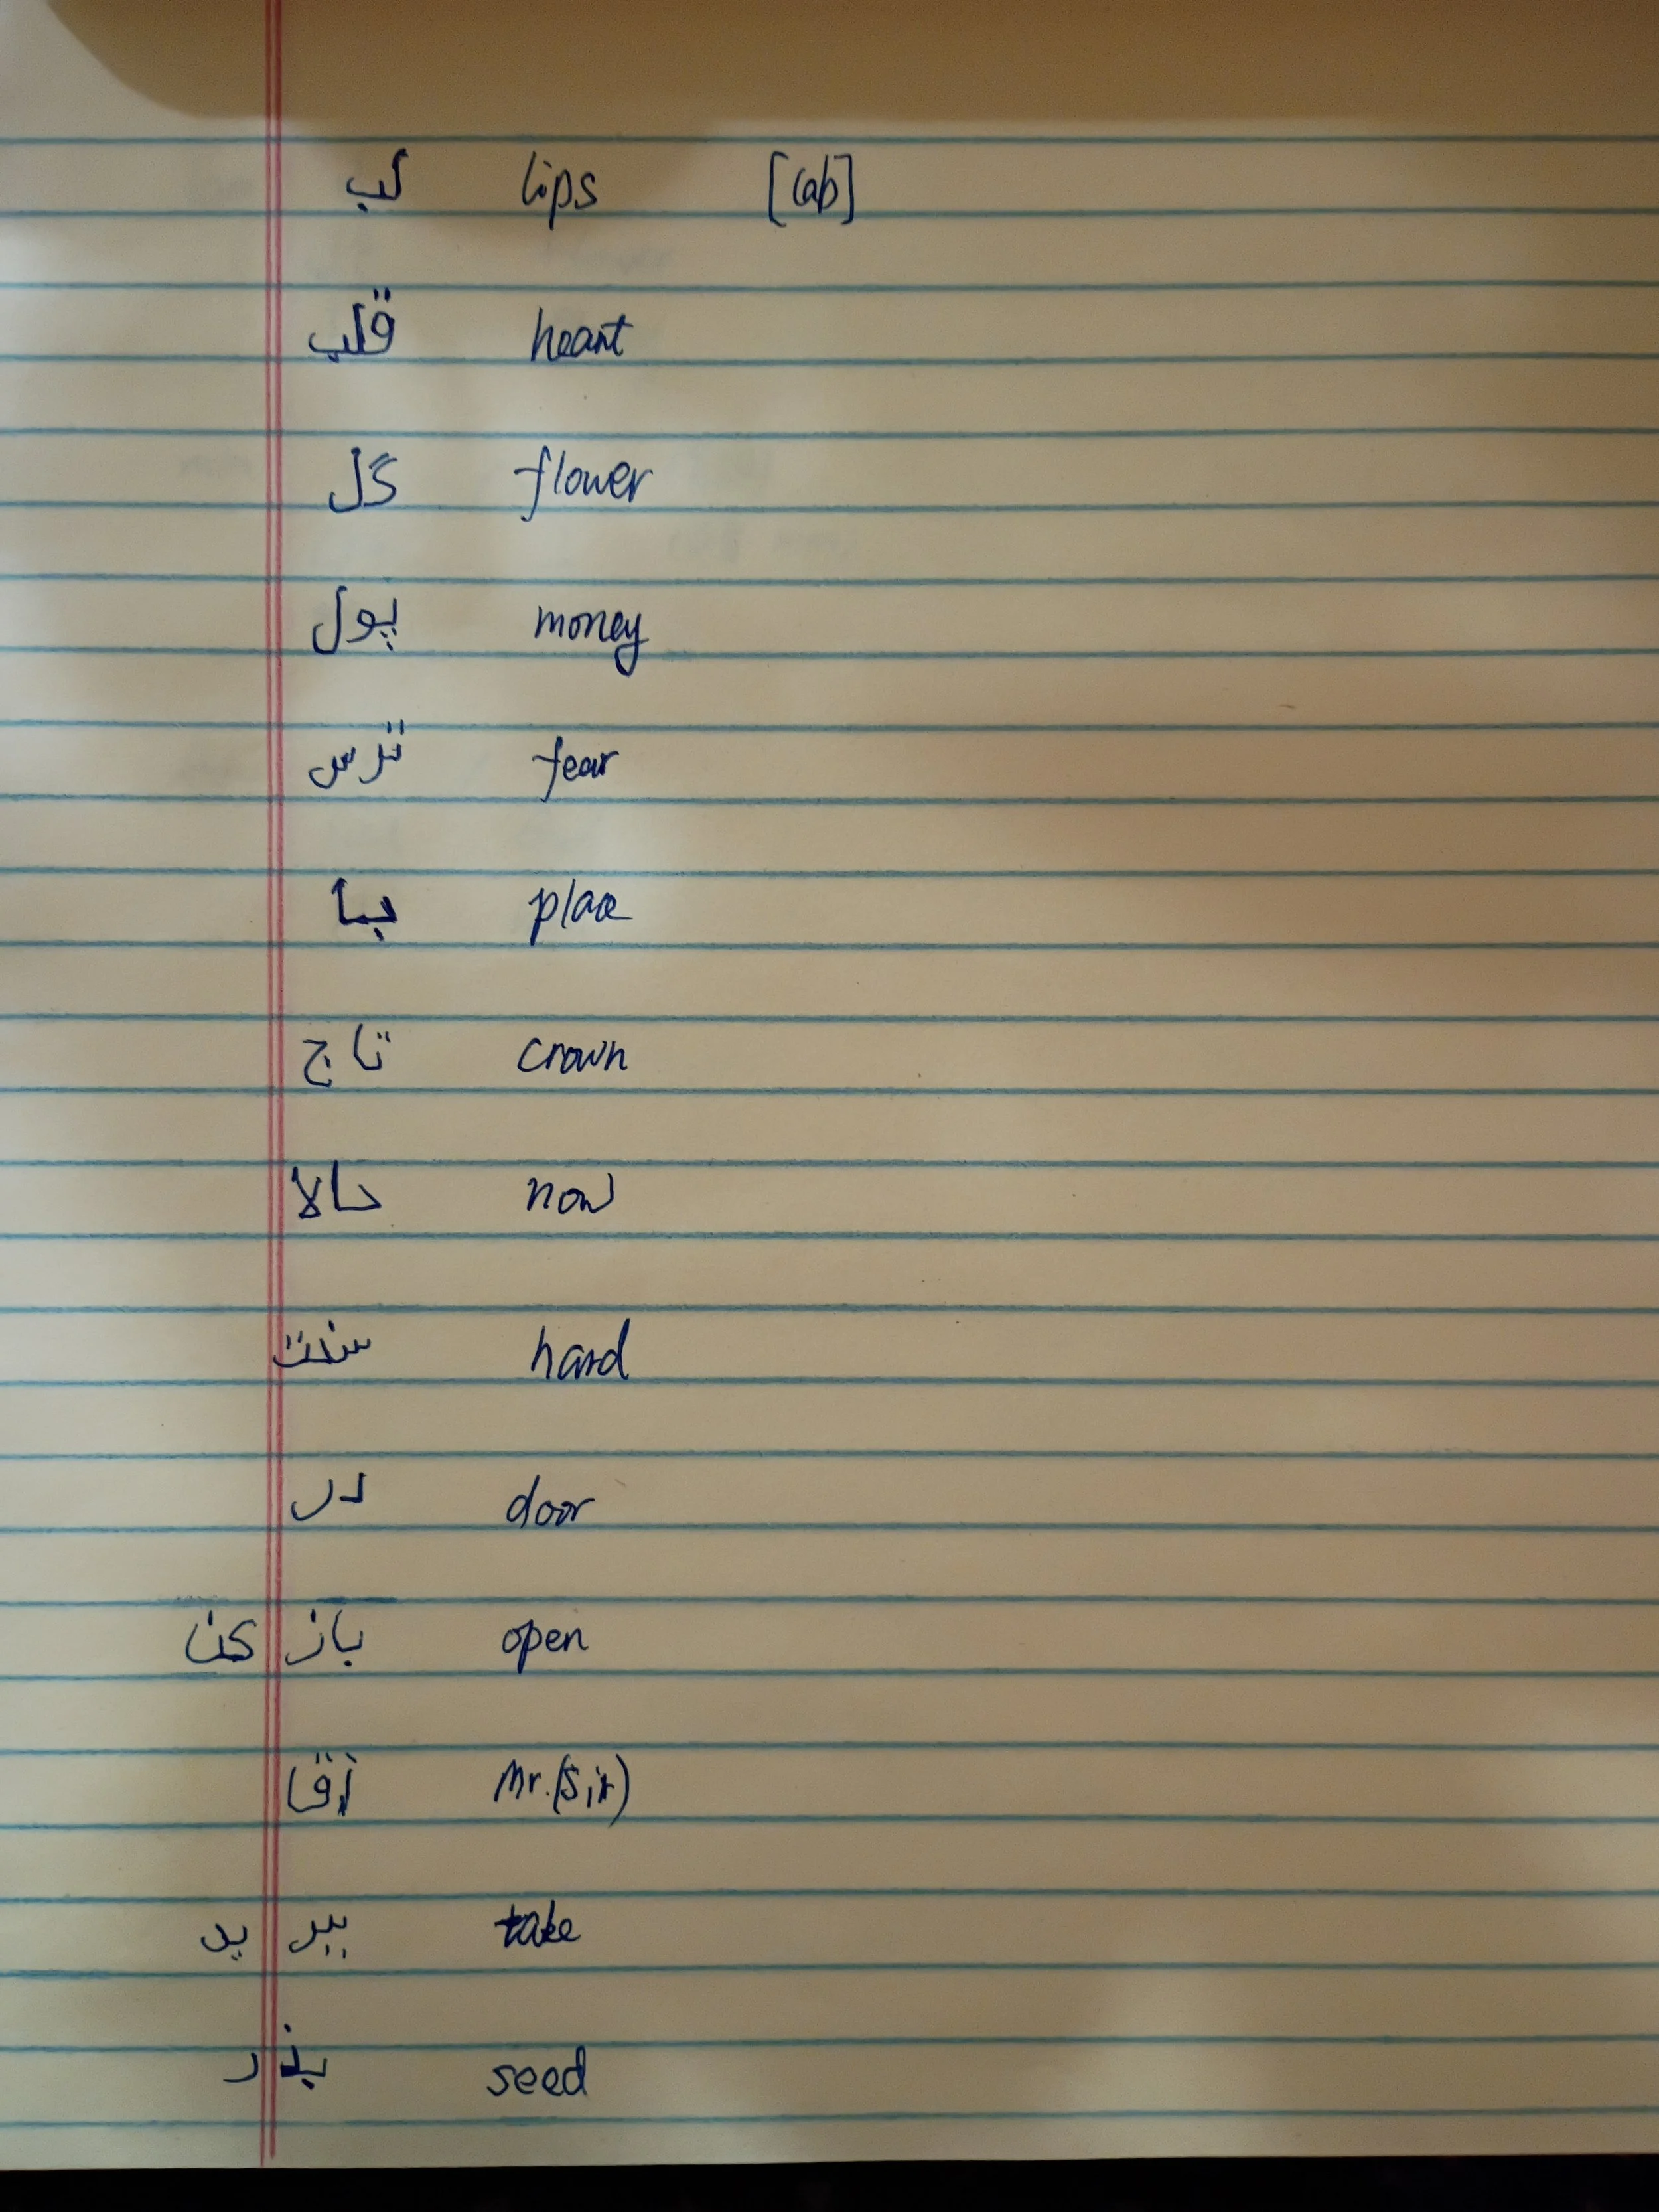 لب lips [lab]
قلب heart
گل flower
پول money
ترس fear
جا place
تاج crown
حالا now
سخت hard
در door
باز کن open
آقا Mr. (Sir)
ببر ید take
بذر seed